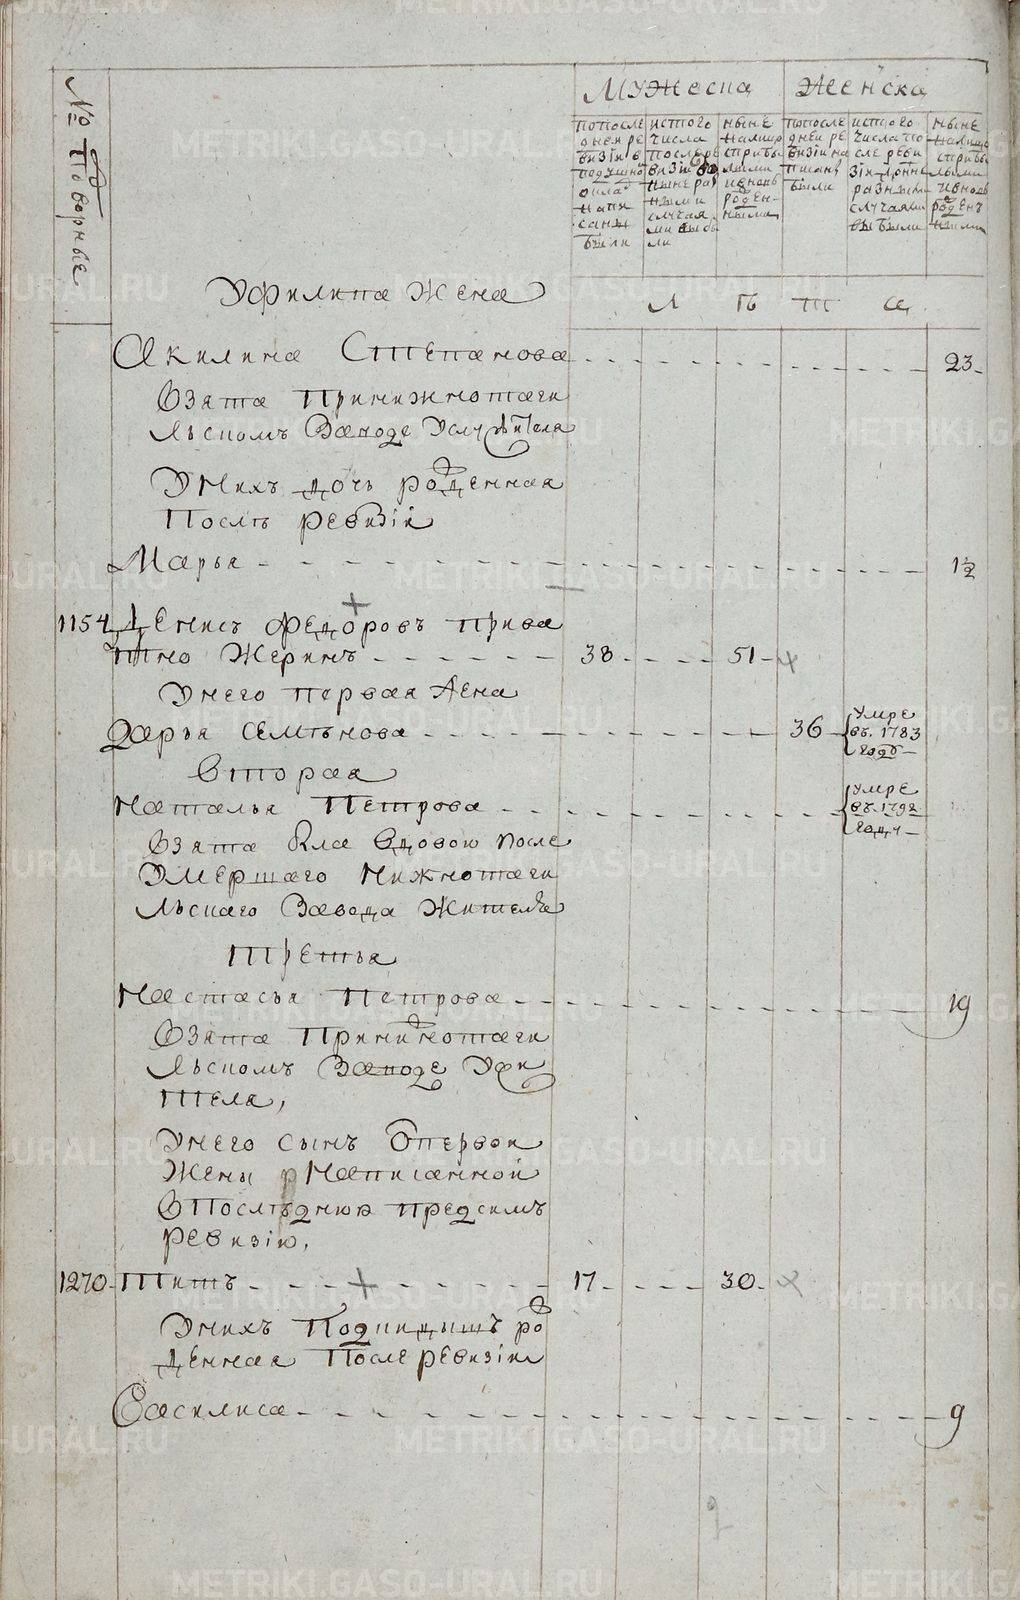 № подворные
Мужеска
Женска
Попоследней ревизии в подушной оклад написаны были
ис того числа после ревизии до ныне разными случаями выбыли
ныне налицо с прибылыми и вновь рожденными
попоследней ревизии написаны были
ис того числа после ревизии до ныне разными случаями выбыли
ныне налицо с прибылыми и вновь рожденными
Уфилипа жена
л ѣ т а
Акилина Степанова 23
Взята Принижнотаги
льскомъ Заводе Услужителя
Унихъ дочь рожденная
Послѣ ревизіи
Марья 1½
1154 Денисъ Федоровъ Прива
Жеринъ 38 51
Унего первая жена
Дарья Семѣнова 36 Умре въ 1783 годе
Вторая
Наталья Петрова Умре въ 1792 годе
Взята Была вдовою после
Умершаго Нижнотаги
льскаго Завода Жителя
Третья
Настасья Петрова 19
Взята Принижнотаги
льскомъ Заводе Ужи
теля,
Унего сынъ Отпервой
Жены Написанной
Впослѣднюю предсимъ
ревизію,
1270 Титъ 17 30
Унихъ Подкидышъ ро
жденная После ревизіи
Василиса 9
METRIKI.GASO-URAL.RU